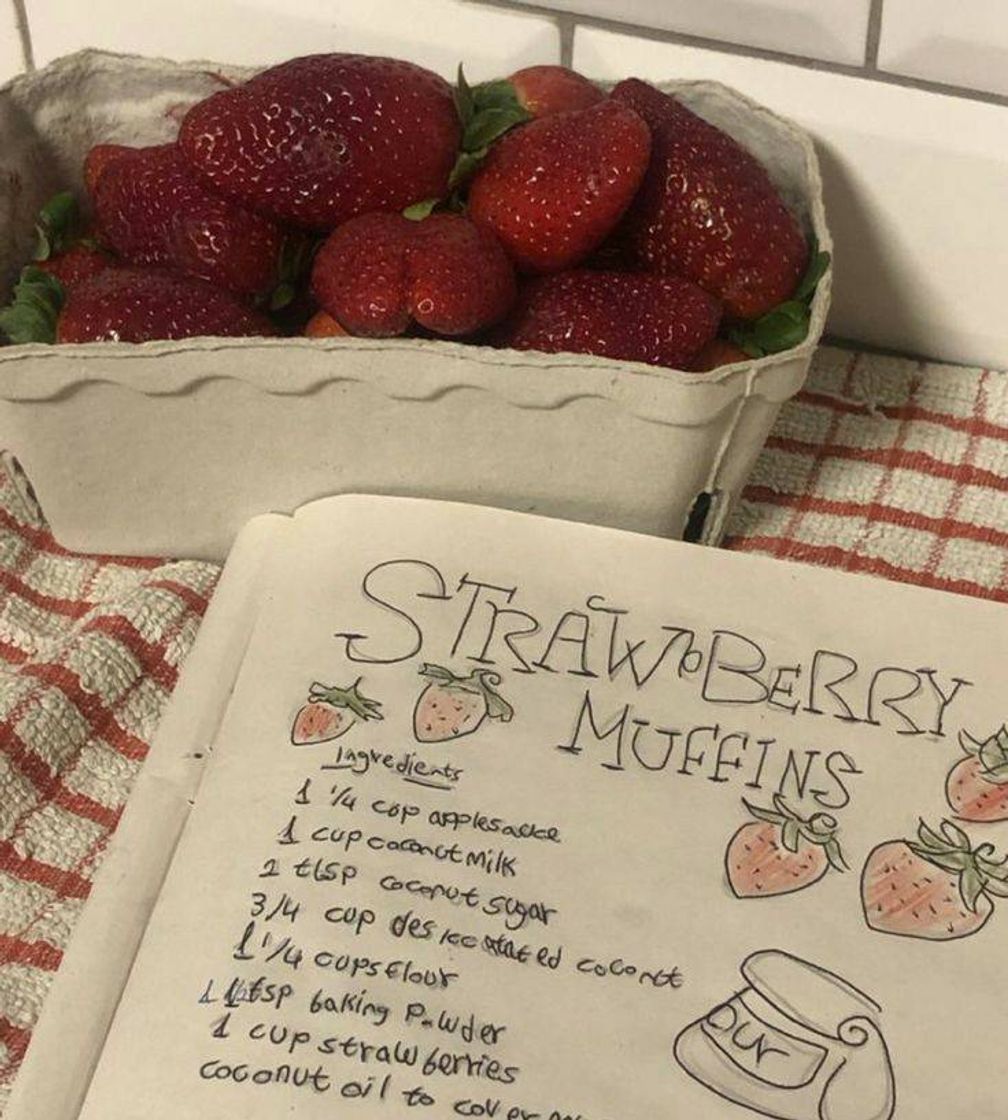 STRAWBERRY
MUFFINS
Ingredients
1 1/4 cup applesauce
1 cup coconut milk
1 tbsp coconut sugar
3/4 cup desiccated coconut
1 1/4 cups flour
1 tsp baking powder
1 cup strawberries
coconut oil to cover
our